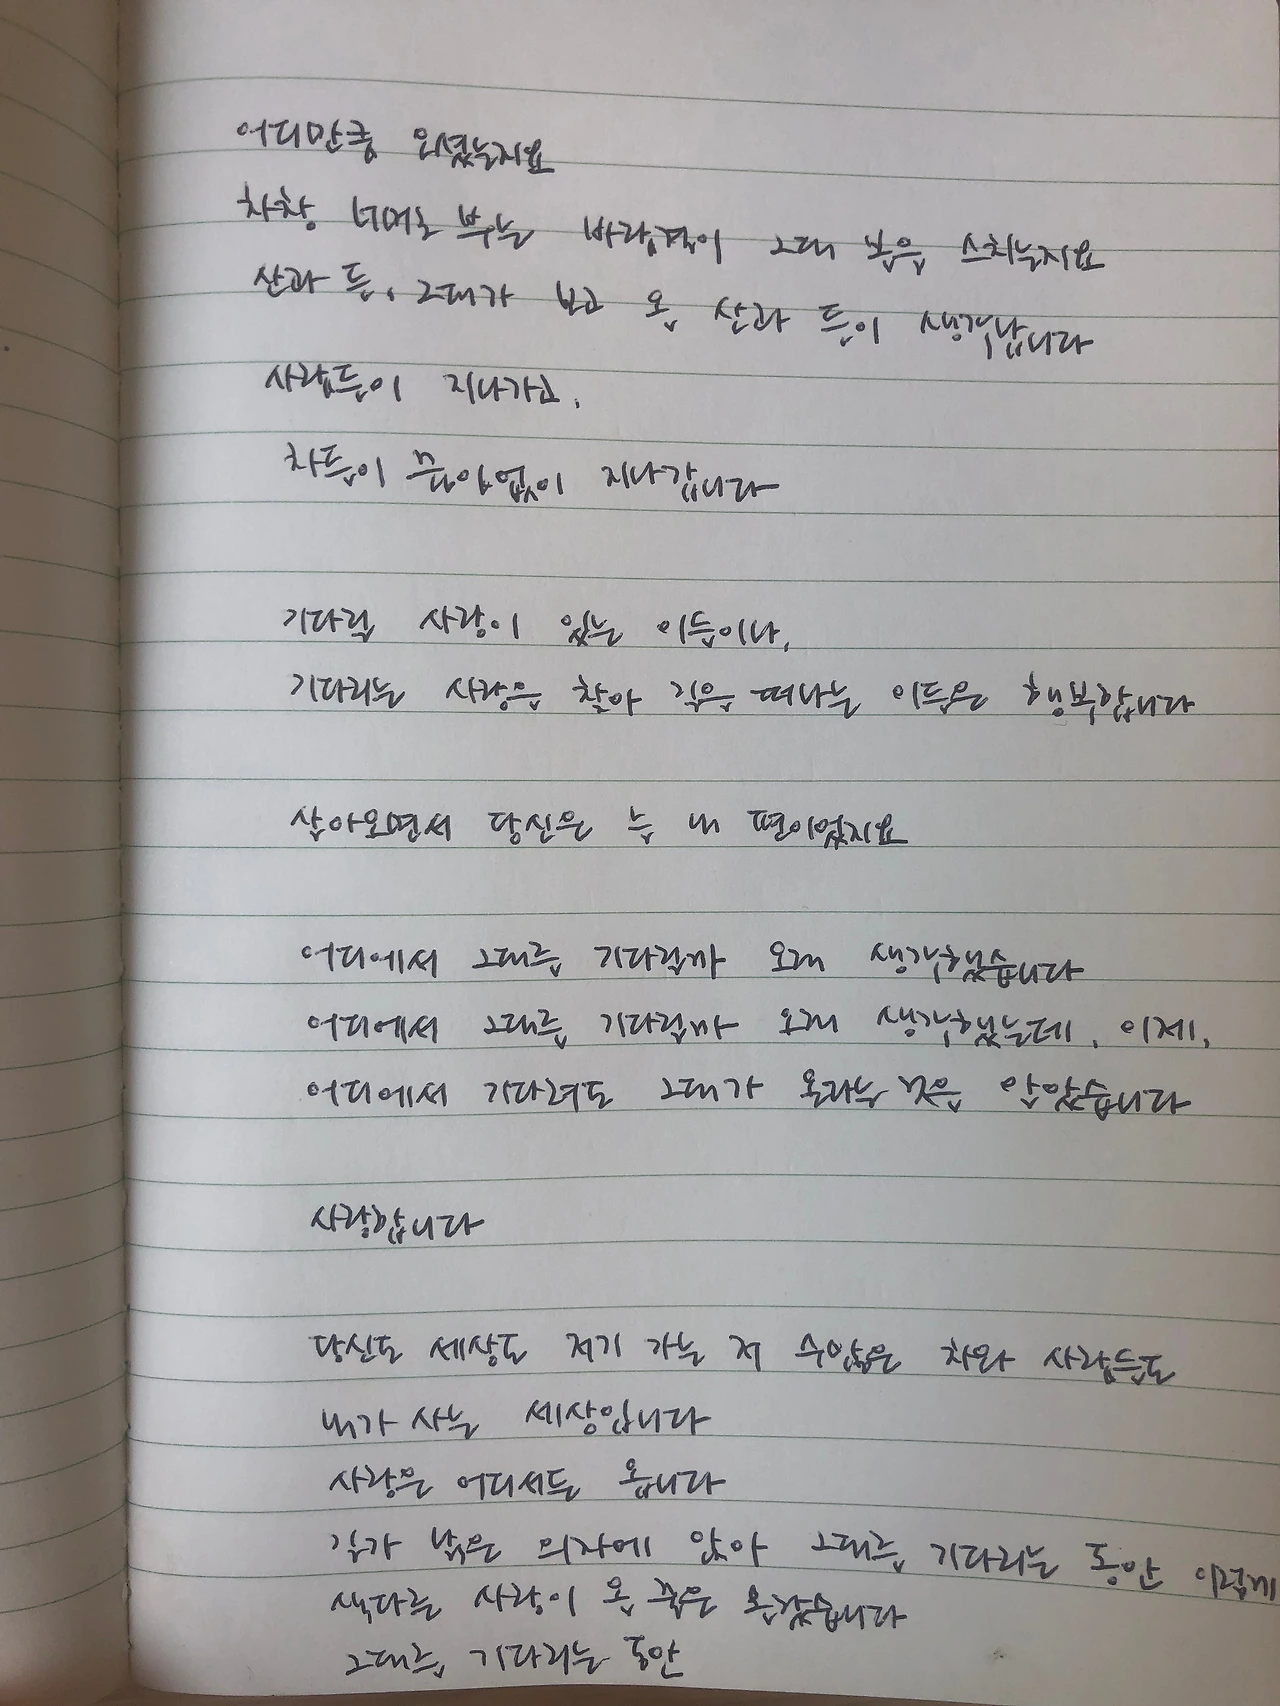 어디만큼 오셨는지요
차창 너머로 부는 바람결이 그대 볼을 스치는지요
산과 들, 그대가 보고 올 산과 들이 생각납니다
사람들이 지나가고,
차들이 끊임없이 지나갑니다
기다릴 사랑이 있는 이들이나,
기다리는 사랑을 찾아 길을 떠나는 이들은 행복합니다
살아오면서 당신은 늘 내 편이었지요
어디에서 그대를 기다릴까 오래 생각했습니다
어디에서 그대를 기다릴까 오래 생각했는데, 이제,
어디에서 기다려도 그대가 온다는 것을 알았습니다
사랑합니다
당신도 세상도 저기 가는 저 수많은 차와 사람들도
내가 사는 세상입니다
사랑은 어디서든 옵니다
길가 낡은 의자에 앉아 그대를 기다리는 동안 이렇게
색다른 사랑이 올 줄은 몰랐습니다
그대를 기다리는 동안